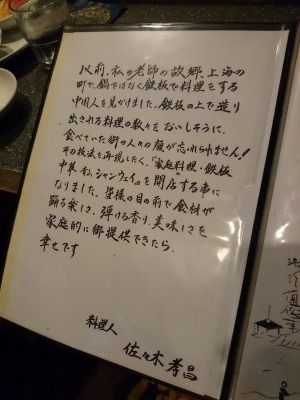 以前、私の老師の故郷、上海の
町で、鍋ではなく鉄板で料理をする
中国人を見かけました。鉄板の上で造り
出される料理の数々をおいしそうに、
食べていた街の人々の顔が忘れられません!
その技法を再現したく、"家庭料理・鉄板
中華 私、シャンウェイ"を開店する事に
なりました。皆様の目の前で食材が
踊る楽しさ、弾ける香り、美味しさを
家庭的に御提供できたら、
幸せです
料理人
佐々木 孝昌